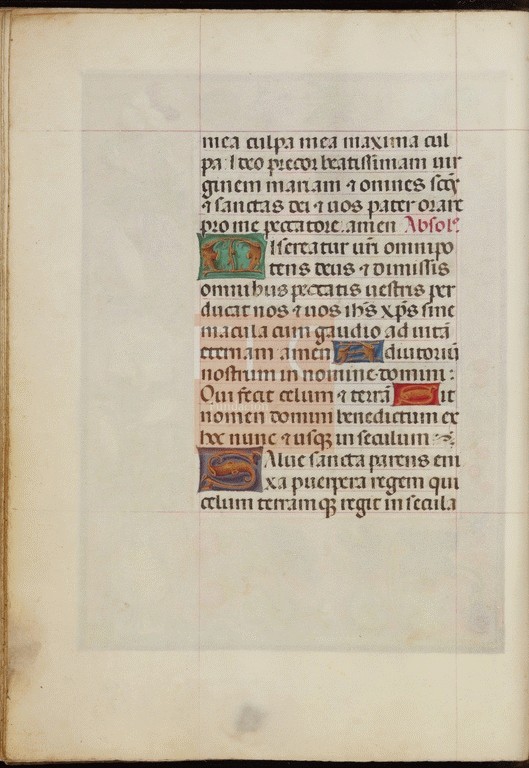 mea culpa mea maxima cul
pa ideo precor beatissimam uir
ginem mariam ⁊ omnes sc̄os
⁊ sanctas dei ⁊ uos pater orare
pro me peccatore. amen Absol᷑
Misereatur ur̄i omnipo
tens deus ⁊ dimissis
omnibus peccatis uestris per
ducat nos ⁊ uos ih̄s xp̄s sine
macula cum gaudio ad uitā
eternam amen Adiutoriū
nostrum in nomine domini :
Qui fecit celum ⁊ terrā Sit
nomen domini benedictum ex
hoc nunc ⁊ usqꝫ in seculum
Salue sancta parens eni
xa puerpera regem qui
celum terramqꝫ regit in secula